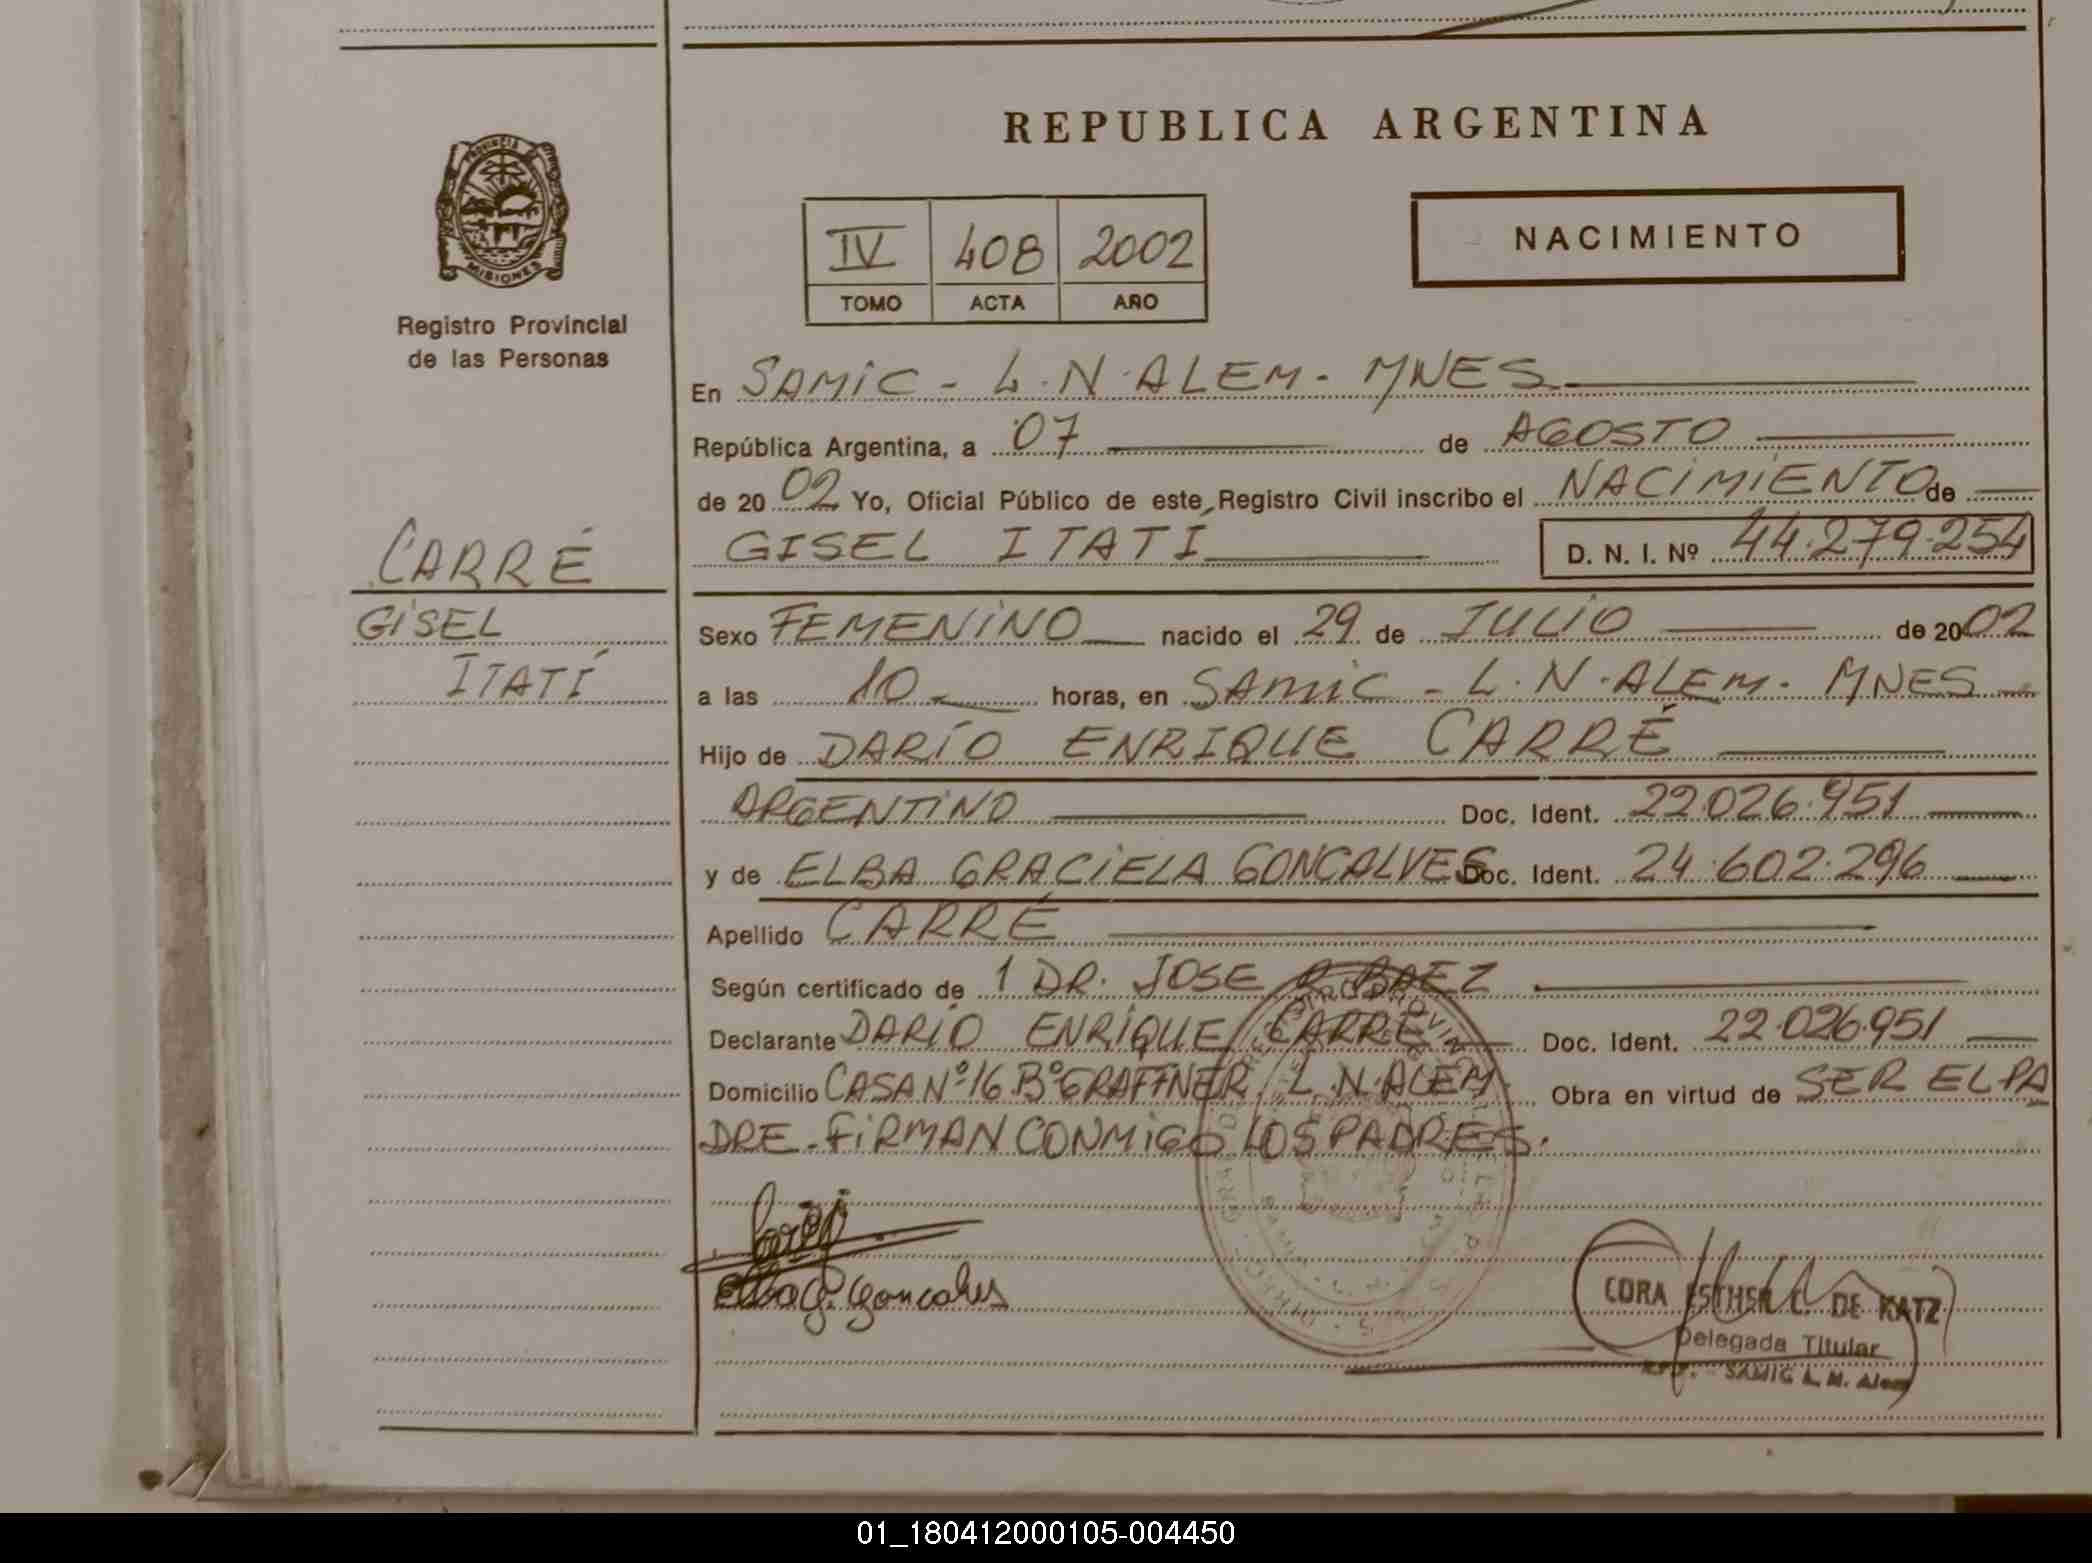 REPUBLICA ARGENTINA
PROVINCIA DE MISIONES
Registro Provincial
de las Personas
IV 408 2002
TOMO ACTA AÑO
NACIMIENTO
En SAMIC - L.N. ALEM - MNES
República Argentina, a 07 de AGOSTO
de 2002 Yo, Oficial Público de este Registro Civil inscribo el NACIMIENTO de
GISEL ITATÍ D. N. I. Nº 44.279.254
CARRÉ
GISEL
ITATÍ
Sexo FEMENINO nacido el 29 de JULIO de 2002
a las 10 horas, en SAMIC - L.N. ALEM - MNES
Hijo de DARÍO ENRIQUE CARRÉ
ARGENTINO Doc. Ident. 22.026.951
y de ELBA GRACIELA GONCALVES Doc. Ident. 24.602.296
Apellido CARRÉ
Según certificado de 1 DR. JOSE R BAEZ
Declarante DARÍO ENRIQUE CARRÉ Doc. Ident. 22.026.951
Domicilio CASA Nº 16 Bº GRAFFNER L.N. ALEM. Obra en virtud de SER EL PA
DRE - FIRMAN CONMIGO LOS PADRES.
Elba G. Goncalves
CORA ESTHER C. DE KATZ
Delegada Titular
R.P.P. - SAMIC L. N. Alem
01_180412000105-004450